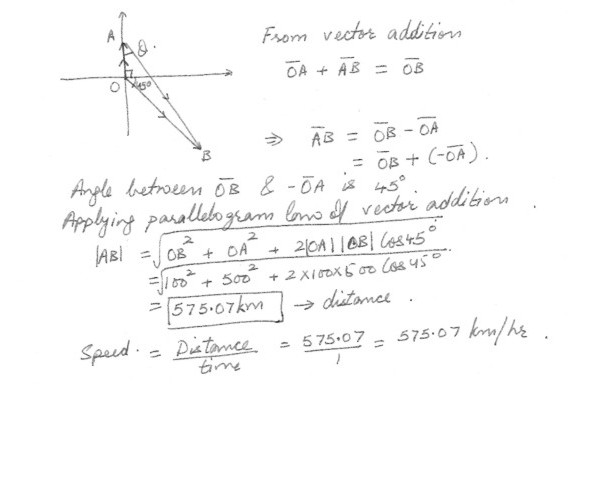 A
θ.
O
45°
B
From vector addition
O̅A̅ + A̅B̅ = O̅B̅
⇒ A̅B̅ = O̅B̅ - O̅A̅
= O̅B̅ + (-O̅A̅).
Angle between O̅B̅ & -O̅A̅ is 45°.
Applying parallelogram law of vector addition.
|AB| = √(OB² + OA² + 2|OA||OB| Cos45°)
= √(100² + 500² + 2×100×500 Cos 45°)
= 575.07km → distance.
Speed. = Distance/time = 575.07/1 = 575.07 km/hr.